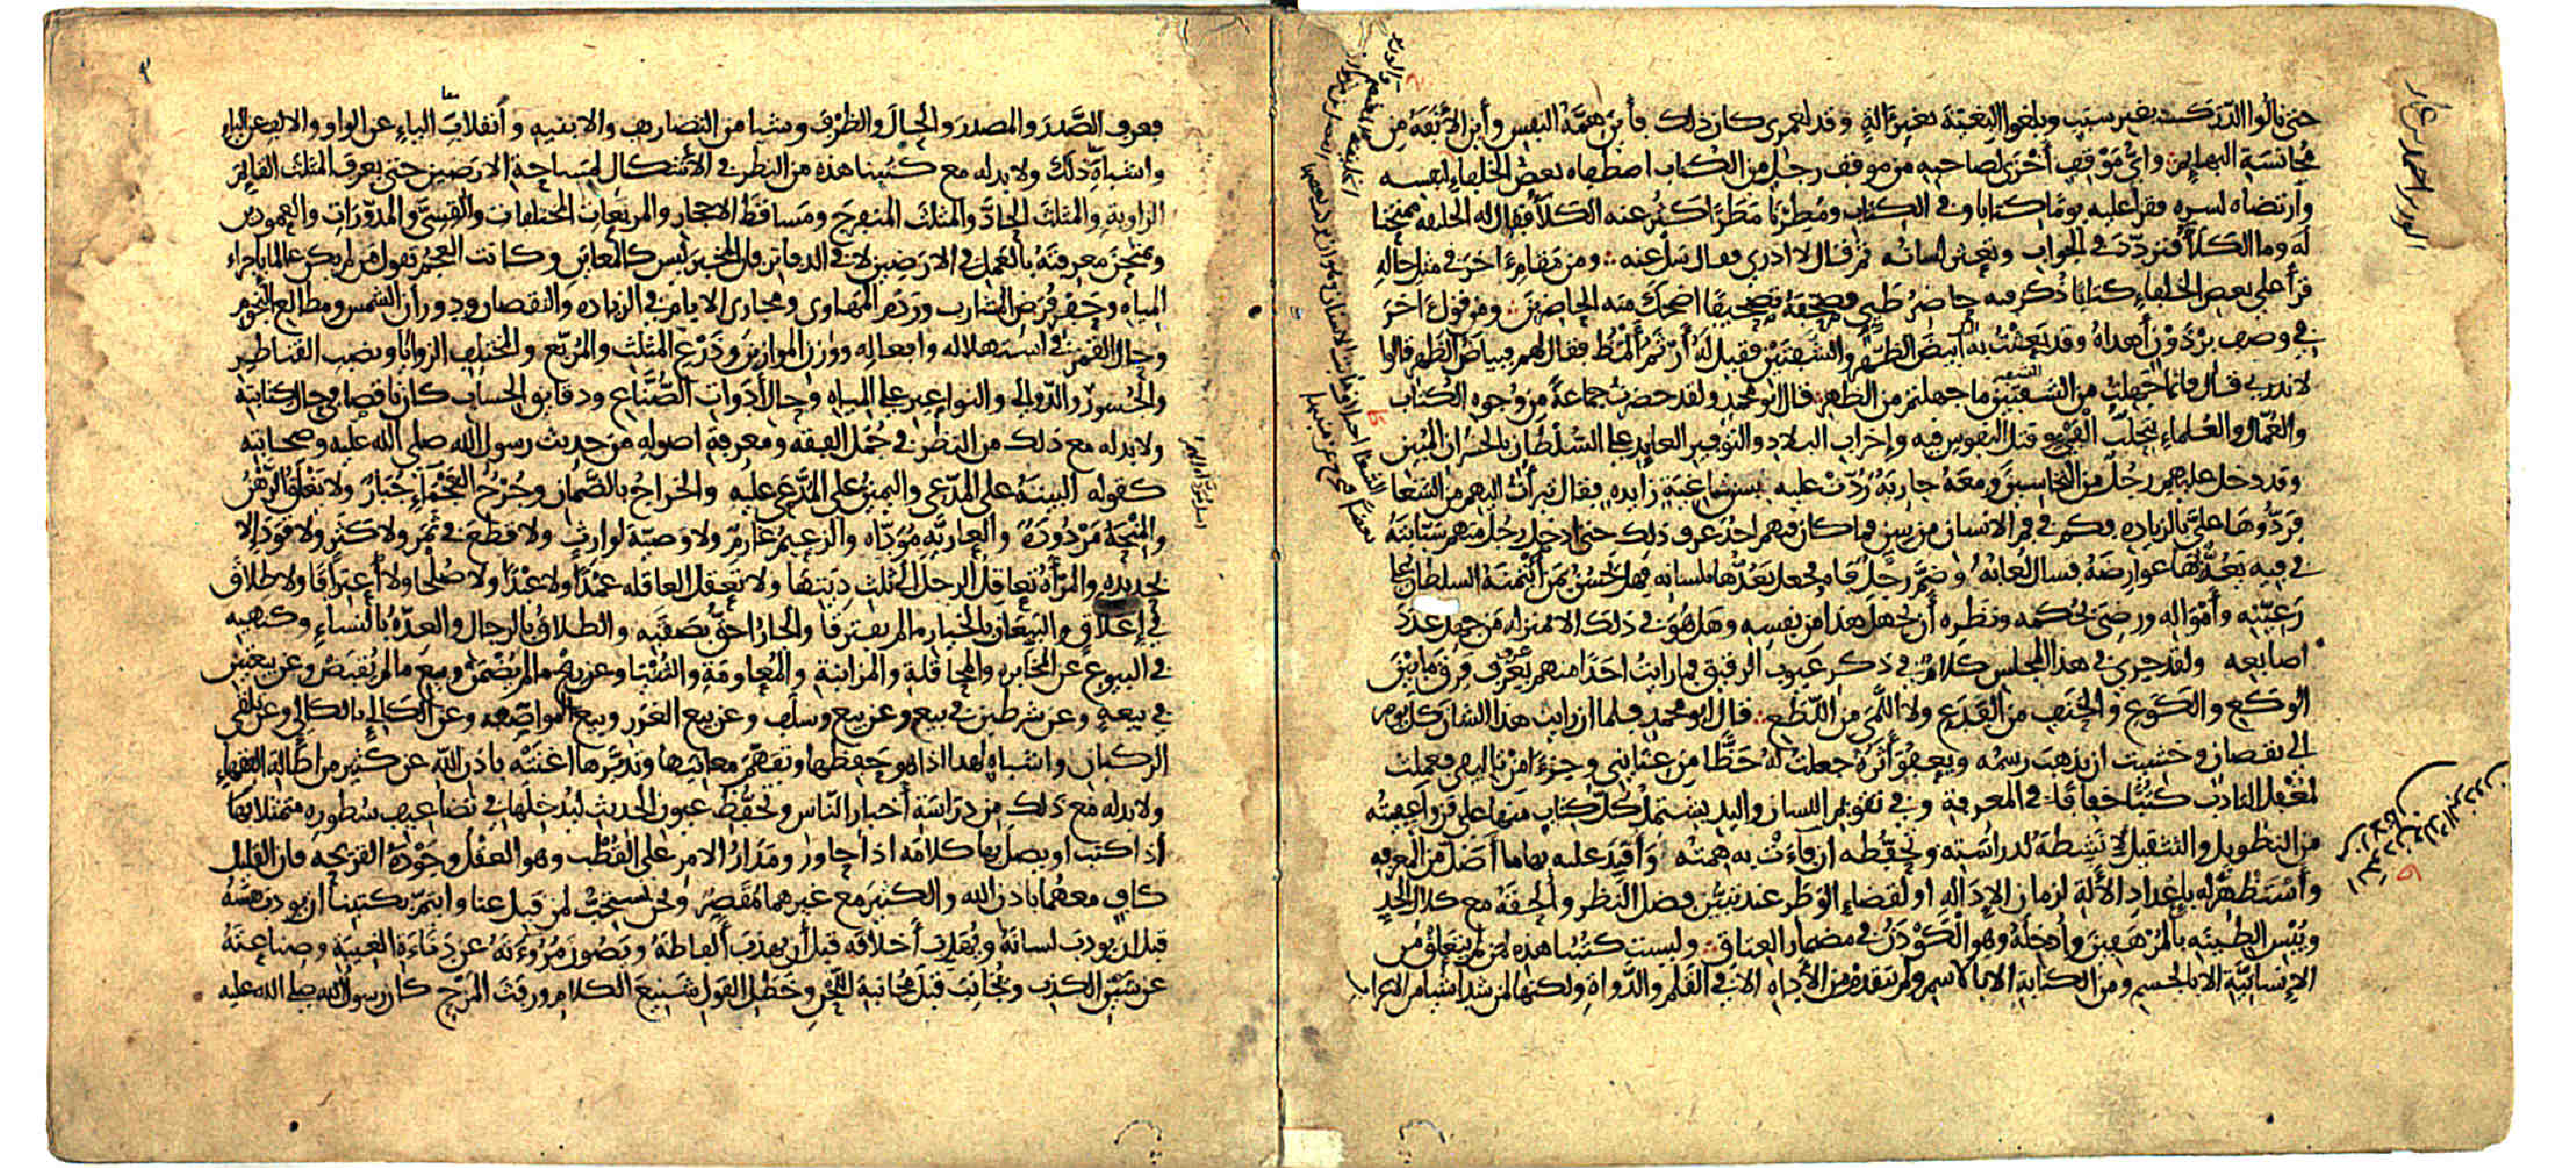 حتى نالوا الدرك بغير سبب وبلغوا البغية بغير آلة وقد لعمري كان ذلك فأين همة النفس وأين الأنفة من
مجانسة البهائم وأي موقف أخزى لصاحبه من موقف رجل من الكتاب اصطفاه بعض الخلفاء لنفسه
وارتضاه لسره فقرأ عليه يوما كتابا وفي الكتاب ومطرنا مطرا كثر عنه الكلأ فقال له الخليفة ممتحنا
له وما الكلأ فتردد في الجواب وتعثر لسانه ثم قال لا أدري فقال سل عنه ومن مقام آخر في مثل حاله
قرأ على بعض الخلفاء كتابا ذكر فيه حاضر طيي فصحفه تصحيفا أضحك منه الحاضرين ومن قول آخر
في وصف برذون أهداه وقد بعثت به أبيض الظهر والشفتين فقيل له أرثم ألمظ فقال لهم فبياض الظهر قالوا
لا ندري قال فإنما جهلت من الشفتين ما جهلتم من الظهر قال أبو محمد ولقد حضرت جماعة من وجوه الكتاب
والعمال والعلماء بتحلب الفيء وقتل النفوس فيه وإخراب البلاد والتوفير العائد على السلطان بالخسران المبين
وقد دخل عليهم رجل من النخاسين ومعه جارية ردت عليه بسن شاغية زايدة فقال تبرأت إليهم من الشغا
فردوها علي بالزيادة فكم في فم الانسان من سن فما كان فيهم أحد عرف ذلك حتى أدخل رجل منهم سبابته
في فيه يعد بها عوارضه فسال لعابه وضم رجل فاه وجعل يعدها بلسانه فهل يحسن بمن ائتمنه السلطان على
رعيته وأمواله ورضي بحكمه ونظره أن يجهل هذا من نفسه وهل هو في ذلك إلا بمنزلة من جهل عدد
أصابعه ولقد جرى في هذا المجلس كلام في ذكر عيوب الرقيق فما رأيت أحدا منهم يعرف فرق ما بين
الوكع والكوع والحنف من الفدع ولا اللمى من اللطع قال أبو محمد فلما أن رأيت هذا الشأن كل يوم
إلى نقصان وخشيت أن يذهب رسمه ويعفو أثره جعلت له حظا من عنايتي وجزءا من تأليفي فعملت
لمغفل التأدب كتبا خفافا في المعرفة وفي تقويم اللسان واليد يشتمل كل كتاب منها على فن وأعفيته
من التطويل والتثقيل لأنشطه لدراسته وتحفظه إن فاءت به همته وأقيد عليه بها ما أضل من المعرفة
وأستظهر له بإعداد الآلة لزمان الإدالة أو لقضاء الوطر عند تبين فضل النظر وألحقه مع كلال الحد
ويبس الطينة بالمرهفين وأدخله وهو الكودن في مضمار العتاق وليست كتبنا هذه لمن لم يتعلق من
الإنسانية إلا بالجسم ومن الكتابة إلا بالاسم ولم يتقدم من الأداة إلا في القلم والدواة ولكنها لمن شدا شيئا من الإعراب
فعرف الصدر والمصدر والحال والظرف وشيئا من التصاريف والابنية وانقلاب الياء عن الواو والالف عن الياء
واشباه ذلك ولا بد له مع كتبنا هذه من النظر في الأشكال لمساحة الارضين حتى يعرف المثلث القائم
الزاوية والمثلث الحاد والمثلث المنفرج ومساقط الاحجار والمربعات المختلفات والقسي والمدورات والعمودين
ويمتحن معرفته بالعمل في الارضين لا في الدفاتر فإن المخبر ليس كالمعاين وكانت العجم تقول من لم يكن عالما باجراء
المياه وحفر فرض المشارب وردم المهاوي ومجاري الايام في الزيادة والنقصان ودوران الشمس ومطالع النجوم
وحال القمر في استهلاله وافعاله ووزن الموازين وذرع المثلث والمربع والمختلف الزوايا ونصب القناطير
والجسور والدوالي والنواعير على المياه وحال أدوات الصناع ودقايق الحساب كان ناقصا في حال كتابته
ولا بد له مع ذلك من النظر في جمل الفقه ومعرفة اصوله من حديث رسول الله صلى الله عليه وصحابته
كقوله البينة على المدعي واليمين على المدعى عليه والخراج بالضمان وجرح العجماء جبار ولا يغلق الرهن
والمنحة مردودة والعارية مؤداه والزعيم غارم ولا وصية لوارث ولا قطع في ثمر ولا كثر ولا قود إلا
بحديدة والمرأة تعاقل الرجل إلى ثلث ديتها ولا تعقل العاقلة عمدا ولا عبدا ولا صلحا ولا اعترافا ولا طلاق
في إغلاق والبيعان بالخيار ما لم يفترقا والجار احق بصقبه والطلاق بالرجال والعدة بالنساء وكنهيه
في البيوع عن المخابرة والمحاقلة والمزابنة والمعاومة والثنيا وعن ربح ما لم يضمن وبيع ما لم يقبض وعن بيعتين
في بيعة وعن شرطين في بيع وعن بيع وسلف وعن بيع الغرر وبيع المواصفة وعن الكالئ بالكالئ وعن تلقي
الركبان واشباه لهذا اذا هو حفظها وتفهم معانيها وتدبرها اغنته باذن الله عن كثير من إطالة الفقهاء
ولا بد له مع ذلك من دراسة أخبار الناس وتحفظ عيون الحديث ليدخلها في تضاعيف سطوره متمثلا بها
اذا كتب او يصل بها كلامه اذا حاور ومدار الامر على القطب وهو العقل وجودة القريحة فإن القليل
كاف معهما باذن الله والكثير مع غيرهما مقصر ونحن نستحب لمن قبل عنا وائتم بكتبنا أن يؤدب نفسه
قبل أن يؤدب لسانه ويهذب أخلاقه قبل أن يهذب ألفاظه ويصون مروءته عن دناءة الغيبة وصناعته
عن شين الكذب ويجانب قبل مجانبة اللحن وخطل القول شنيع الكلام ورفث المزح كان رسول الله صلى الله عليه